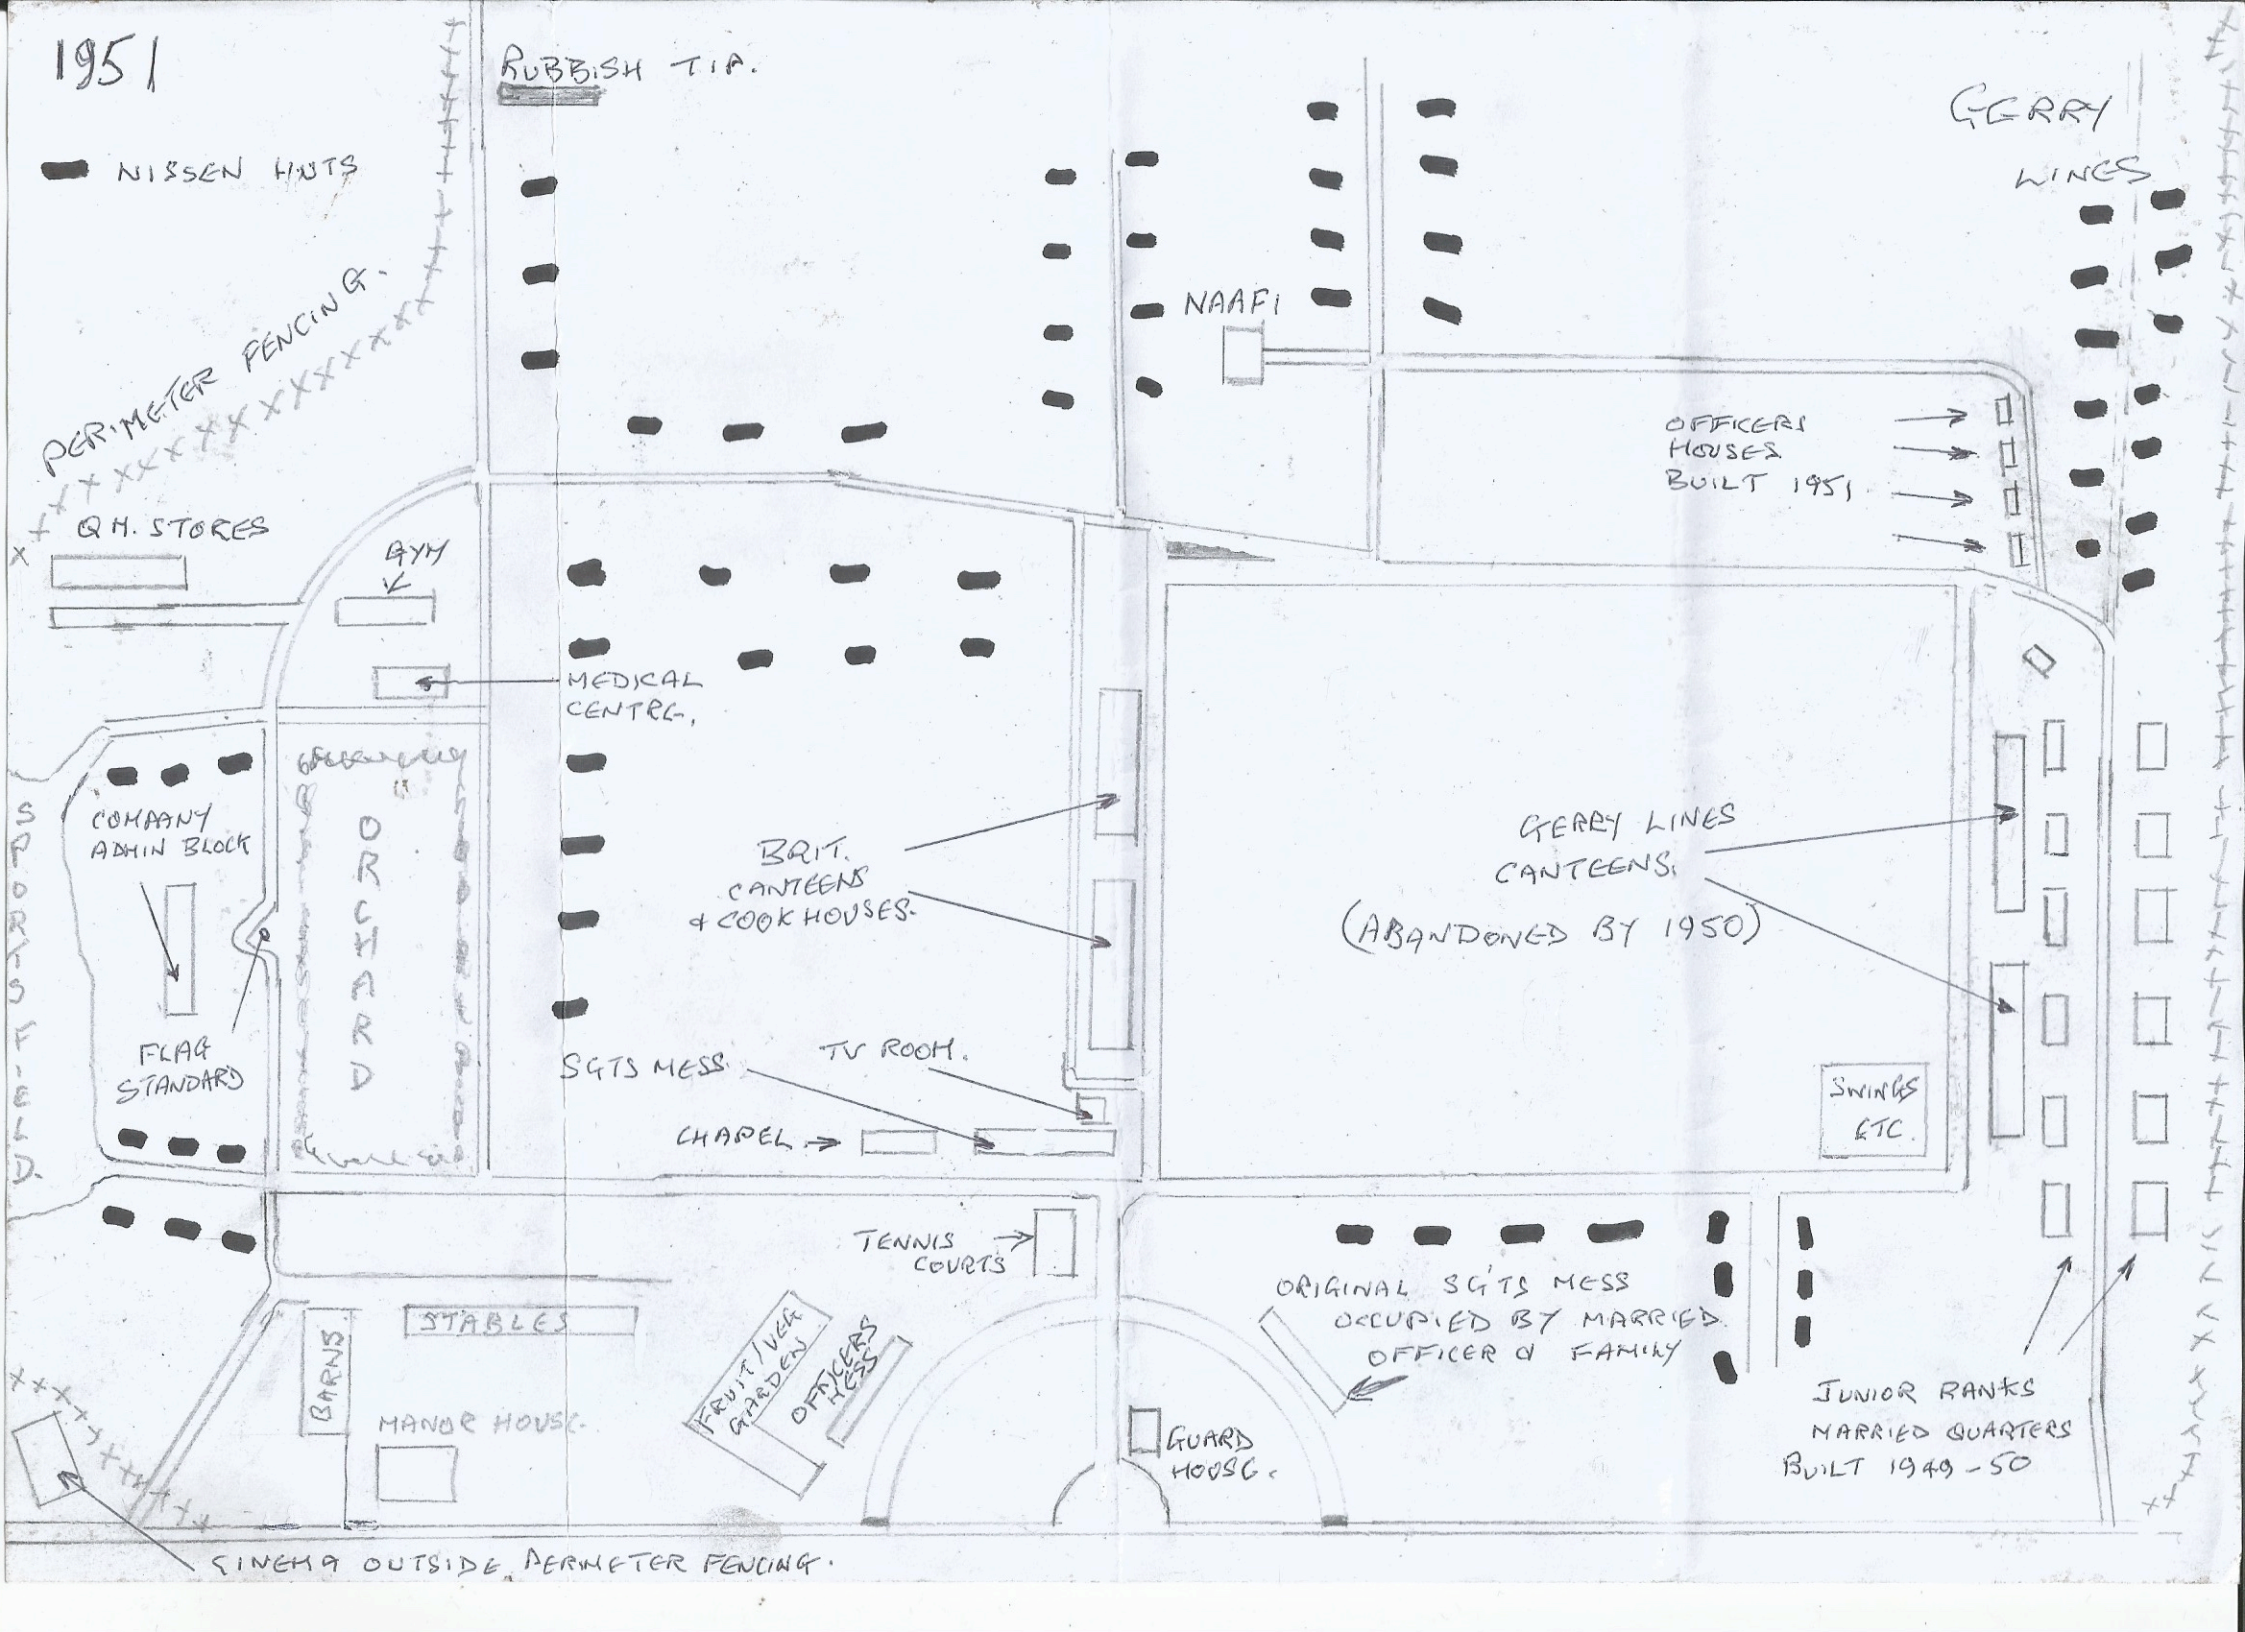 1951
RUBBISH TIP.
NISSEN HUTS
GERRY
LINES
PERIMETER FENCING.
NAAFI
OFFICERS
HOUSES
BUILT 1951
Q M. STORES
GYM
MEDICAL
CENTRE.
COMPANY
ADMIN BLOCK
ORCHARD
SPORTS FIELD.
BRIT.
CANTEENS
& COOKHOUSES.
GERRY LINES
CANTEENS.
(ABANDONED BY 1950)
FLAG
STANDARD
SGTS MESS.
TV ROOM.
CHAPEL
SWINGS
ETC.
TENNIS
COURTS
ORIGINAL SGTS MESS
OCCUPIED BY MARRIED
OFFICER & FAMILY
STABLES
BARNS.
FRUIT/VEG
GARDEN
OFFICERS
MESS
MANOR HOUSE.
GUARD
HOUSE.
JUNIOR RANKS
MARRIED QUARTERS
BUILT 1949-50
CINEMA OUTSIDE PERIMETER FENCING.